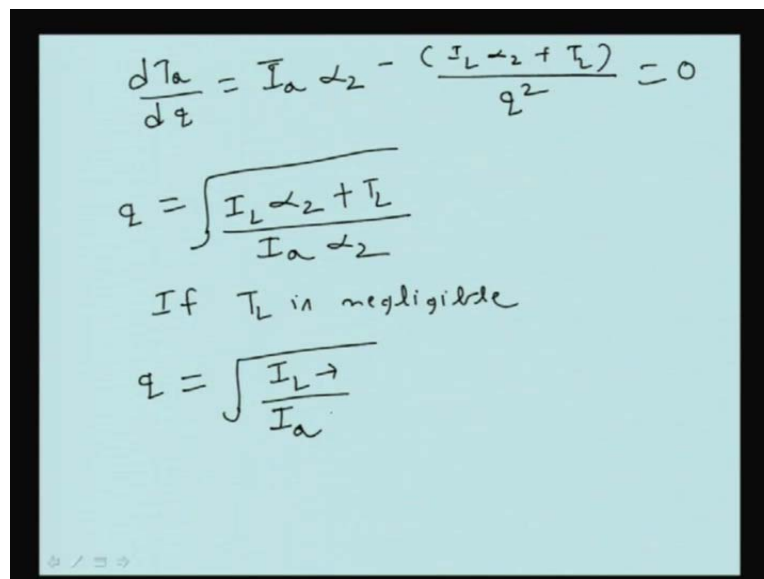 dTa/dq = Ia α2 - (IL α2 + TL)/q² = 0
q = √((IL α2 + TL)/(Ia α2))
If TL is negligible
q = √(IL →/Ia)